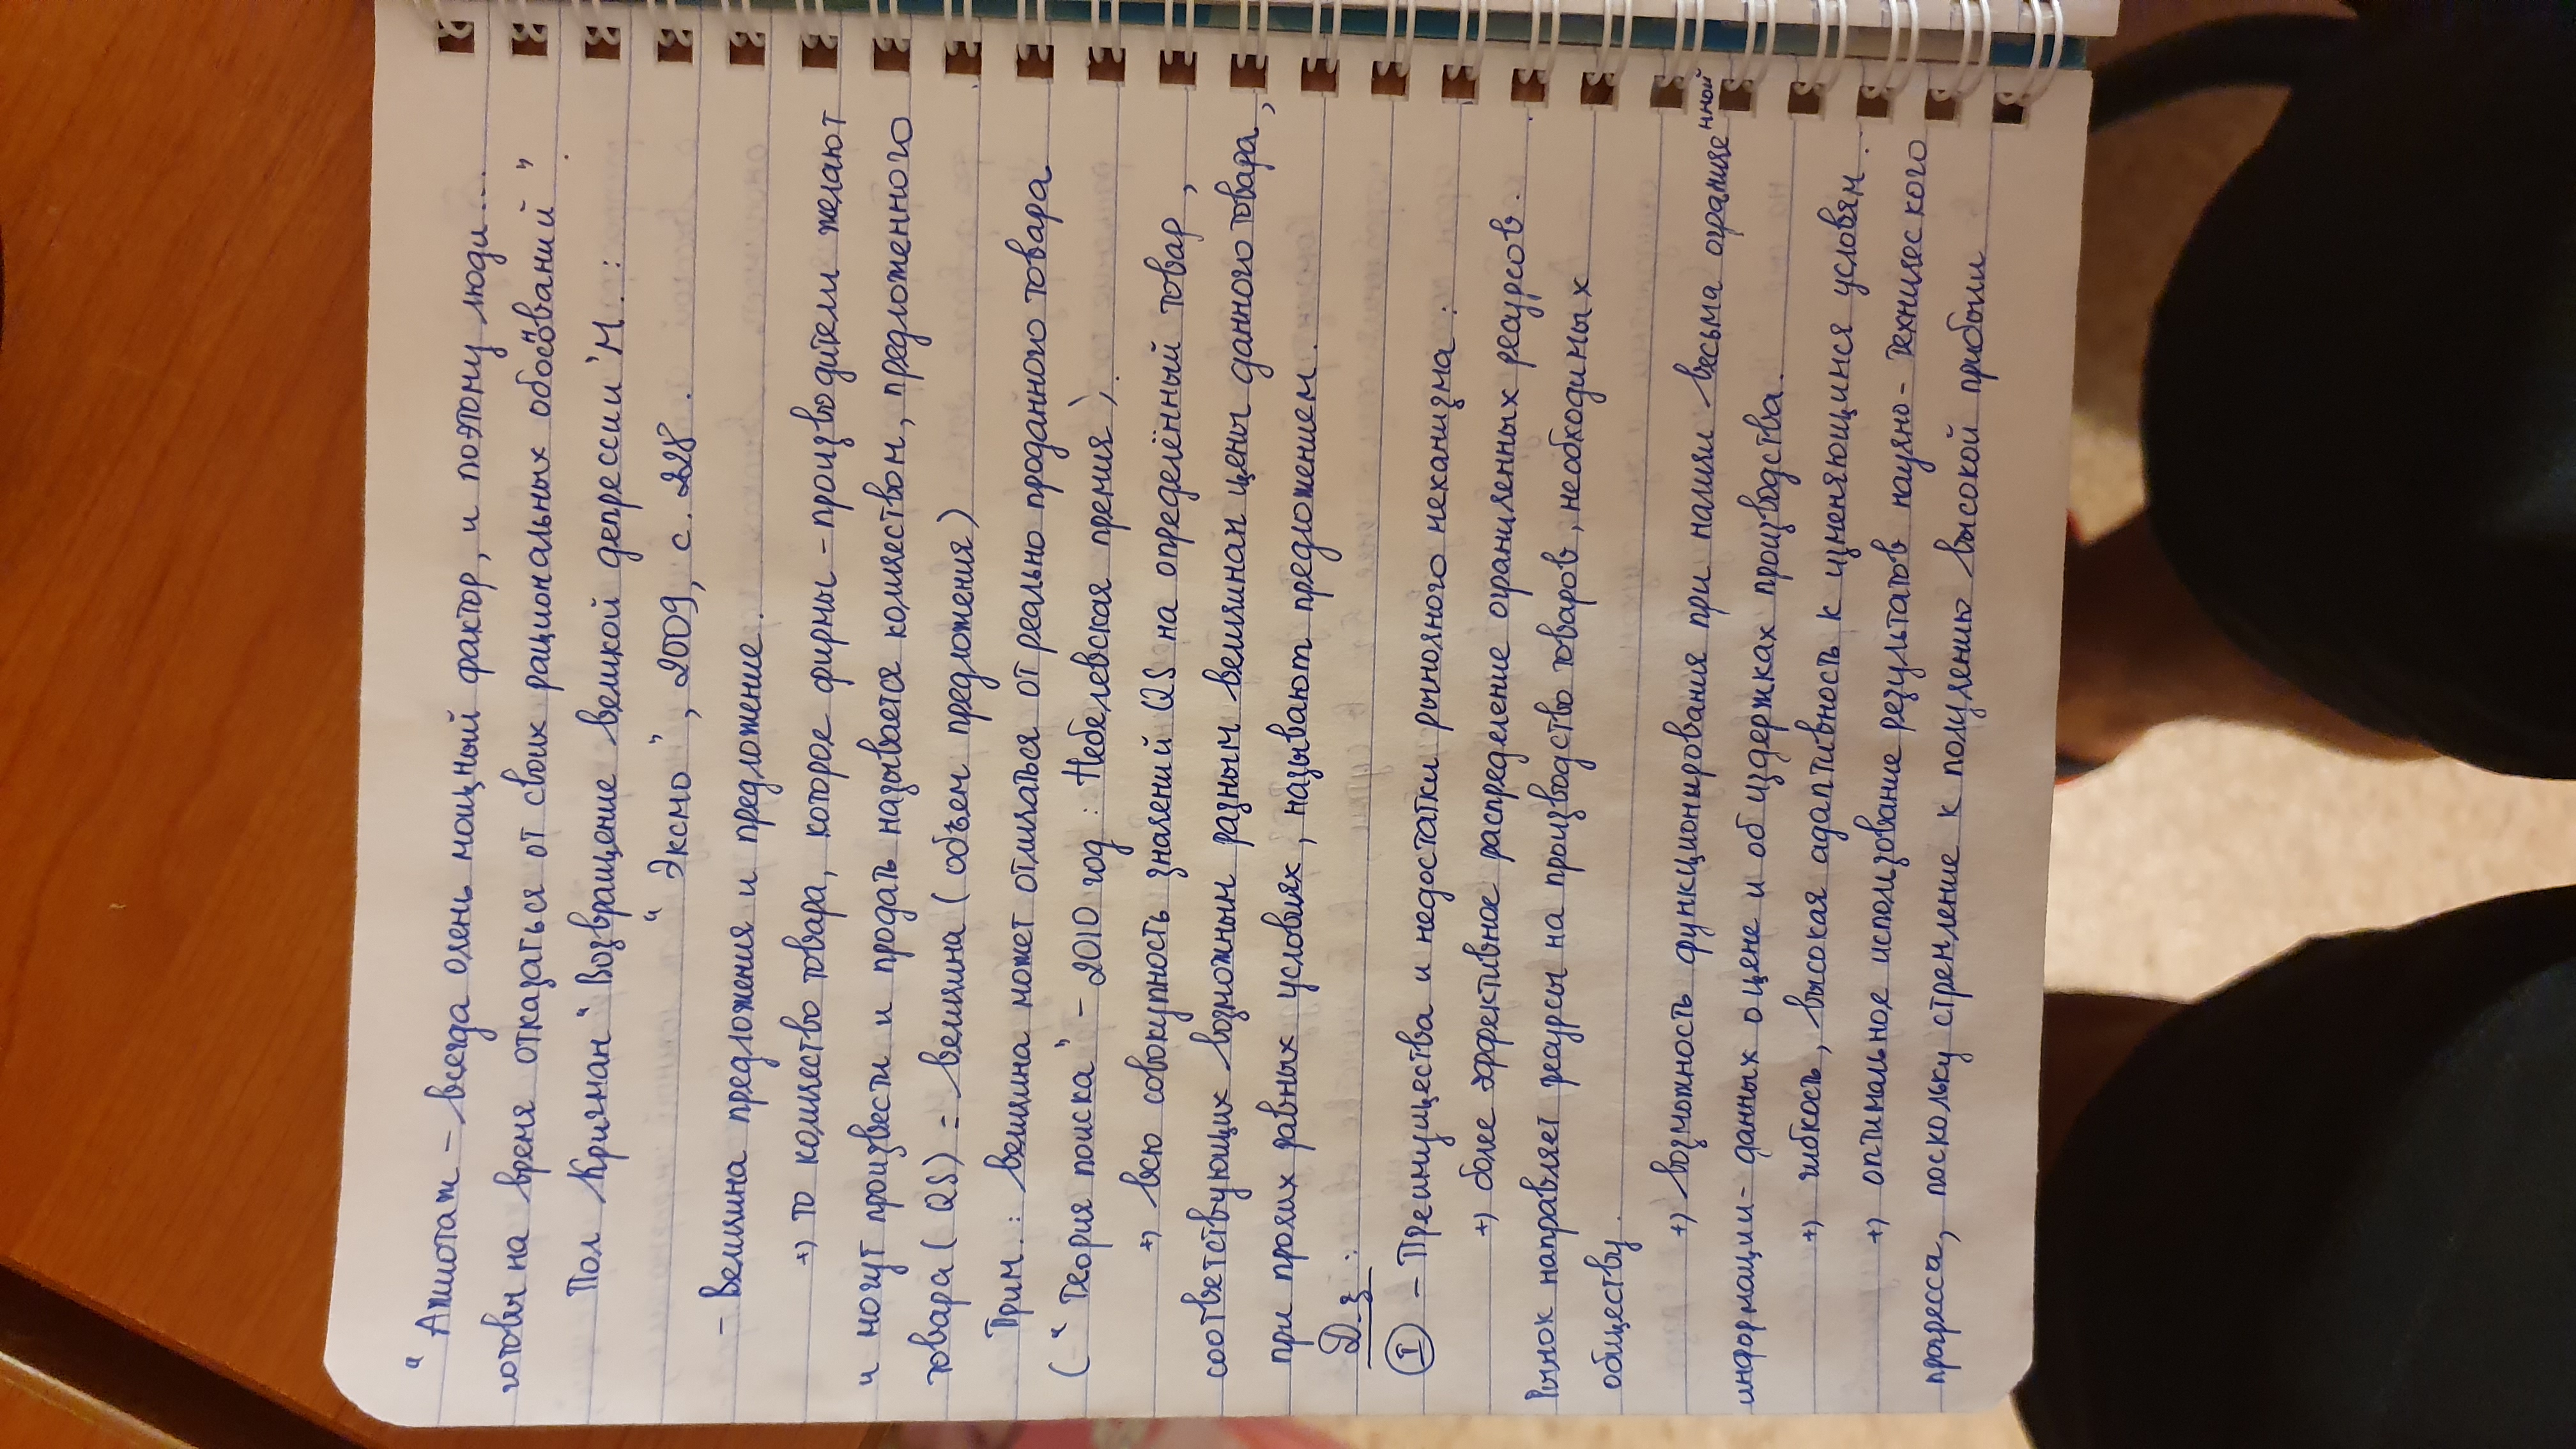 "Ажиотаж – всегда очень мощный фактор, и поэтому люди...
готовы на время отказаться от своих рациональных обоснований".
Пол Кригман "Возвращение великой депрессии" М. :
"Эксмо", 2009, с. 228.
– Величина предложения и предложение.
+) то количество товара, которое фирмы – производители желают
и могут произвести и продать называется количеством, предложенного
товара (QS) = величина (объем предложения)
Прим. : величина может отличаться от реально проданного товара
("Теория поиска" – 2010 год : Небелевская премия).
+) всю совокупность значений QS на определённый товар,
соответствующих возможным разным величинам цены данного товара,
при прочих равных условиях, называют предложением.
Д.з :
I – Преимущества и недостатки рыночного механизма :
+) более эффективное распределение ограниченных ресурсов.
Рынок направляет ресурсы на производство товаров, необходимых
обществу.
+) возможность функционирования при наличи весьма ограниченной
информации – данных о цене и об издержках производства.
+) гибкость, высокая адаптивность к изменяющимся условям.
+) оптимальное использование результатов научно – технического
прогресса, поскольку стремление к получению высокой прибыли